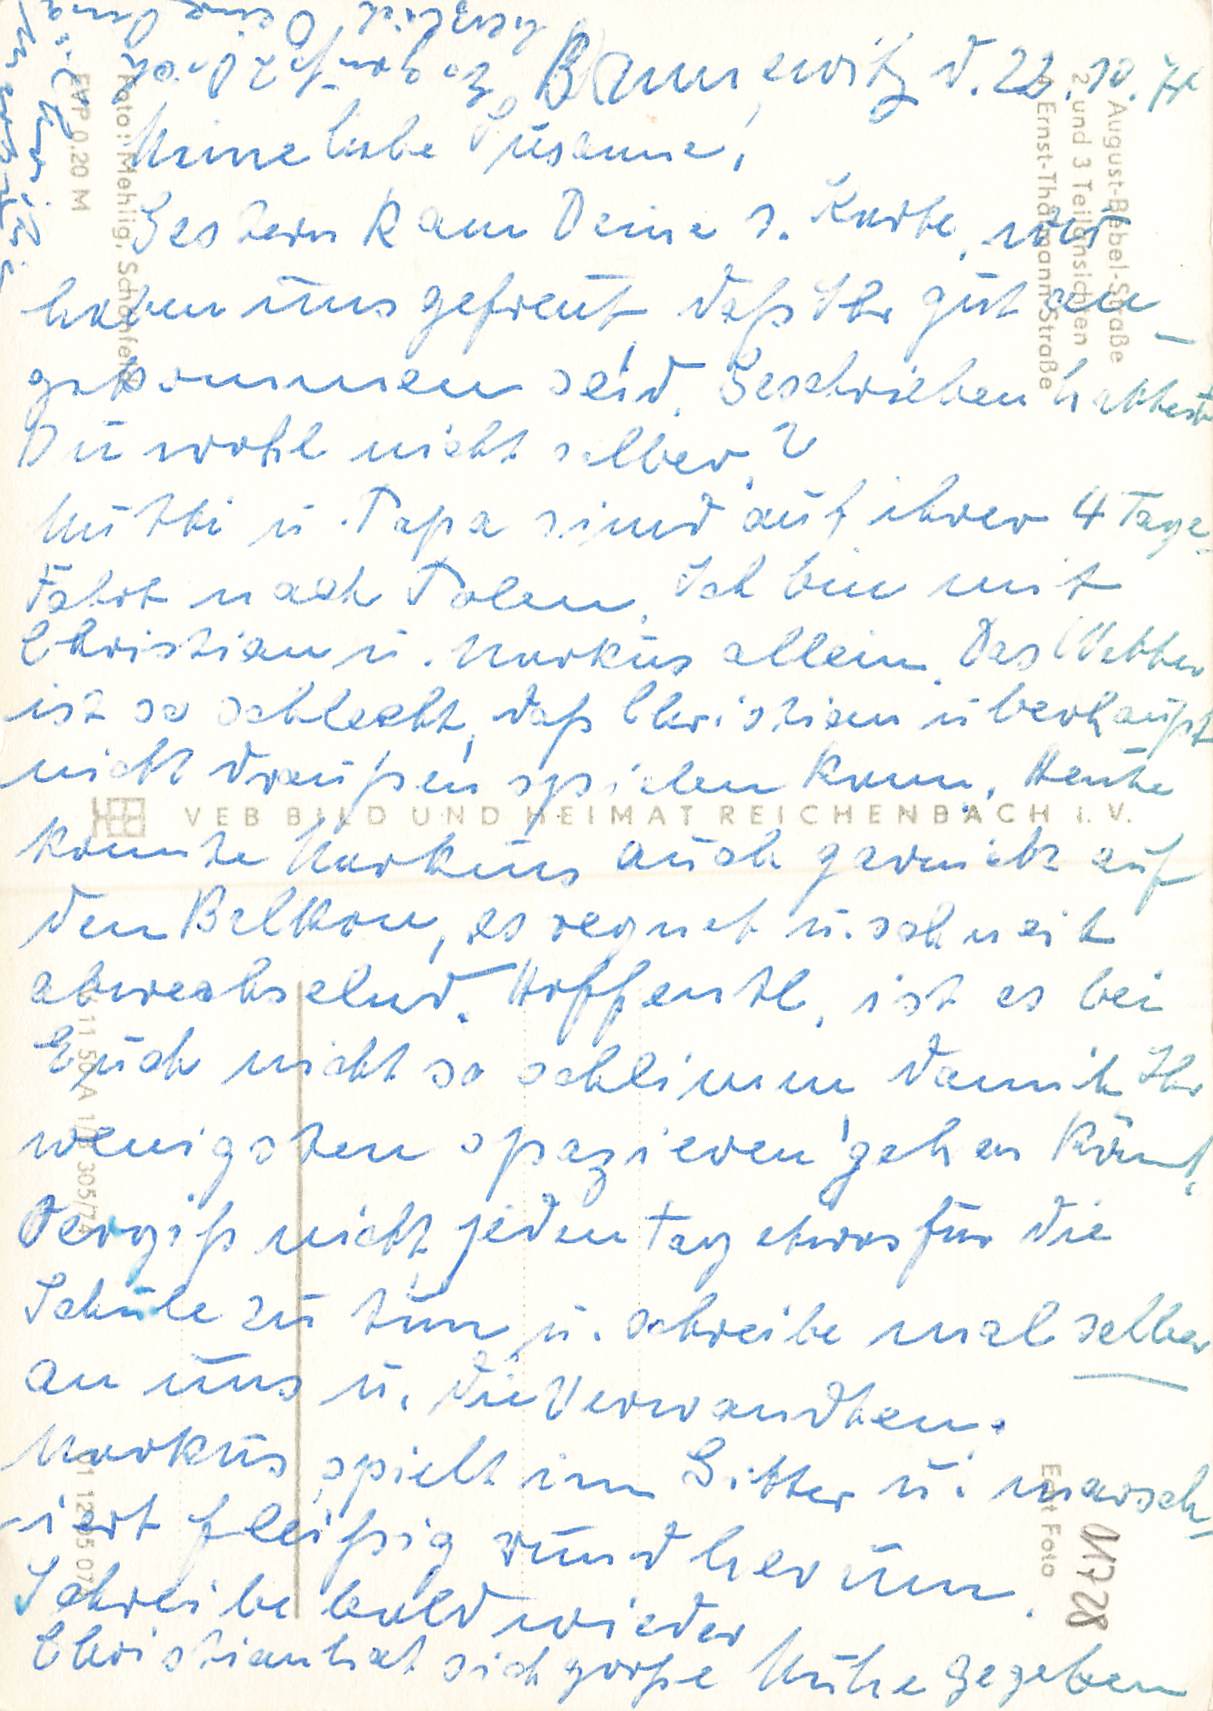 Bannewitz d. 22.10.74
Meine liebe Susanne!
Gestern kam Deine 1. Karte, wir
haben uns gefreut daß Ihr gut an-
gekommen seid. Geschrieben hattest
Du wohl nicht selber?
Mutti u. Papa sind auf ihrer 4 Tage-
Fahrt nach Polen. Ich bin mit
Christian u. Markus allein. Das Wetter
ist so schlecht, daß Christian überhaupt
nicht draußen spielen kann. Heute
konnte Markus auch garnicht auf
den Balkon, es regnet u. schneit
abwechselnd. Hoffentl. ist es bei
Euch nicht so schlimm damit Ihr
wenigsten spazieren gehen könnt.
Vergiß nicht jeden Tag etwas für die
Schule zu tun u. schreibe mal selber
an uns u. die Verwandten.
Markus spielt im Gitter u. marsch-
iert fleißig rund herum.
Schreibe bald wieder
Christian hat sich große Mühe gegeben
herzlich Deine Oma
August-Bebel-Straße
2 und 3 Teilansichten
Ernst-Thälmann-Straße
Foto: Mehlig, Schönfeld
EVP 0.20 M
VEB BILD UND HEIMAT REICHENBACH i. V.
Echt Foto
01728